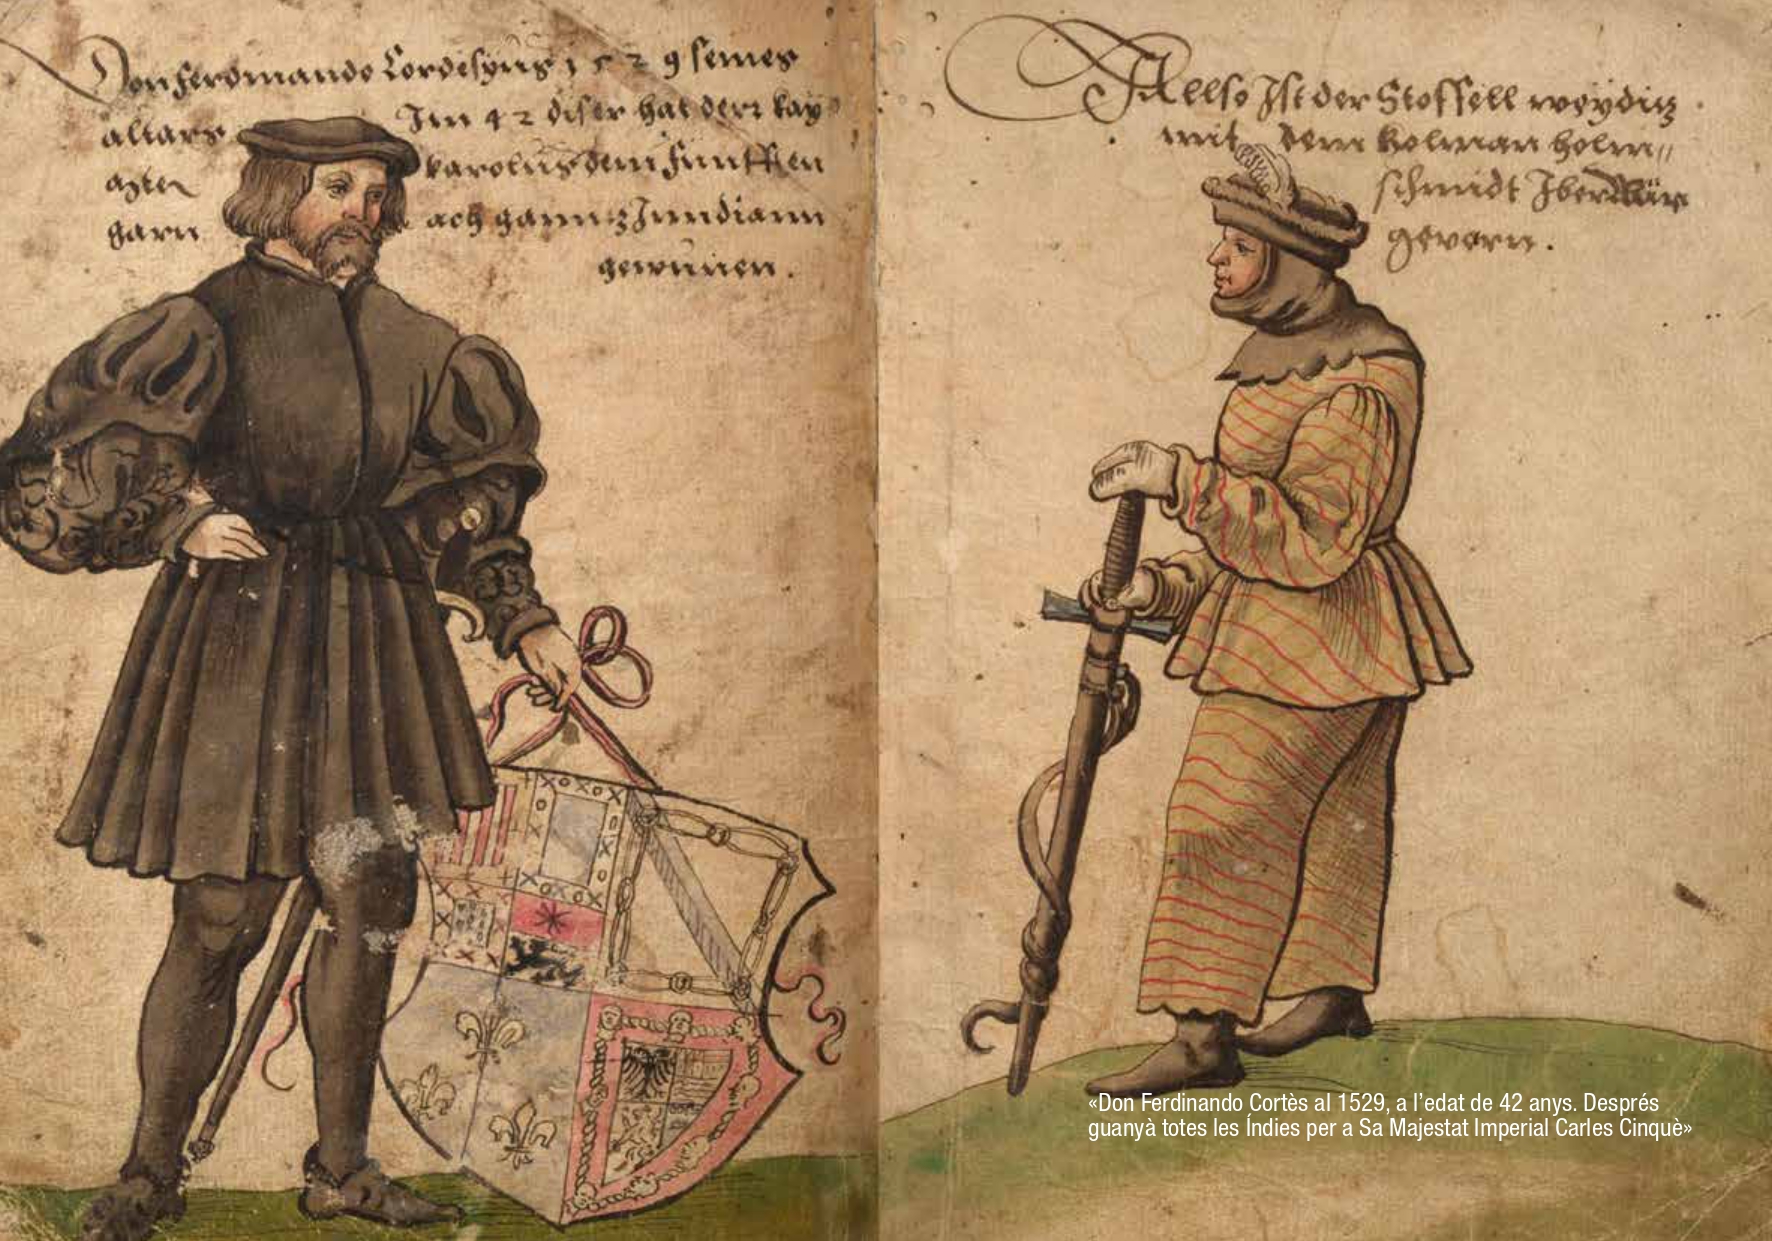 Don ferdinando Cordesyus 1529 semes
alltars Im 42 diser hat derr kay
karolus dem funfften
ach ganntz Inndiann
gewunen.
Allso Ist der Stoffell weyditz
mit dem kolman holm„
schmidt Iber
«Don Ferdinando Cortès al 1529, a l'edat de 42 anys. Després
guanyà totes les Índies per a Sa Majestat Imperial Carles Cinquè»